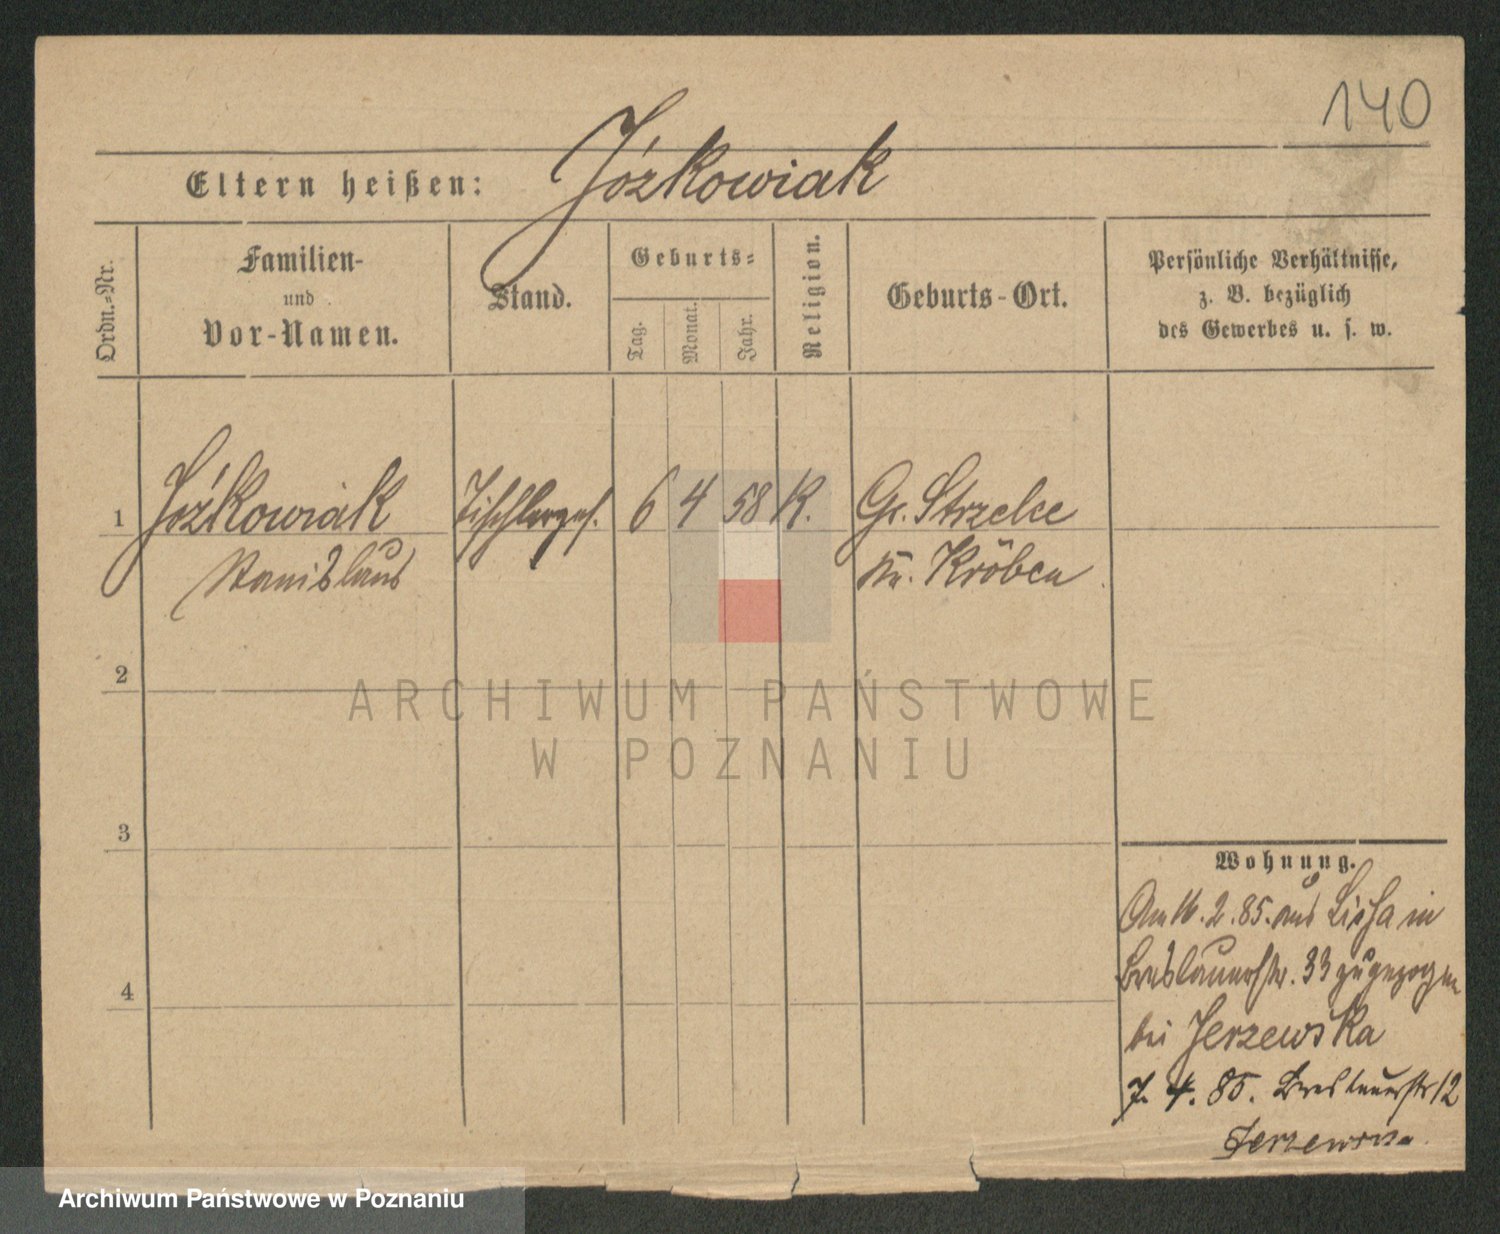 140
Eltern heißen: Józkowiak
Ordn.-Nr.
Familien-
und
Vor-Namen.
Stand.
Geburts-
Tag.
Monat.
Jahr.
Religion.
Geburts-Ort.
Persönliche Verhältnisse,
z. B. bezüglich
des Gewerbes u. s. w.
1 Józkowiak Tischlerges. 6 4 58 K. Gr. Strzelce
Stanislaus Kr. Kröben
2
3
4
ARCHIWUM PAŃSTWOWE
W POZNANIU
Wohnung.
Am 16.2.85. aus Lissa in
Breslauerstr. 33 zugezogen
bei Jerzewska
7. 4. 85. Breslauerstr 12
Jerzewska.
Archiwum Państwowe w Poznaniu